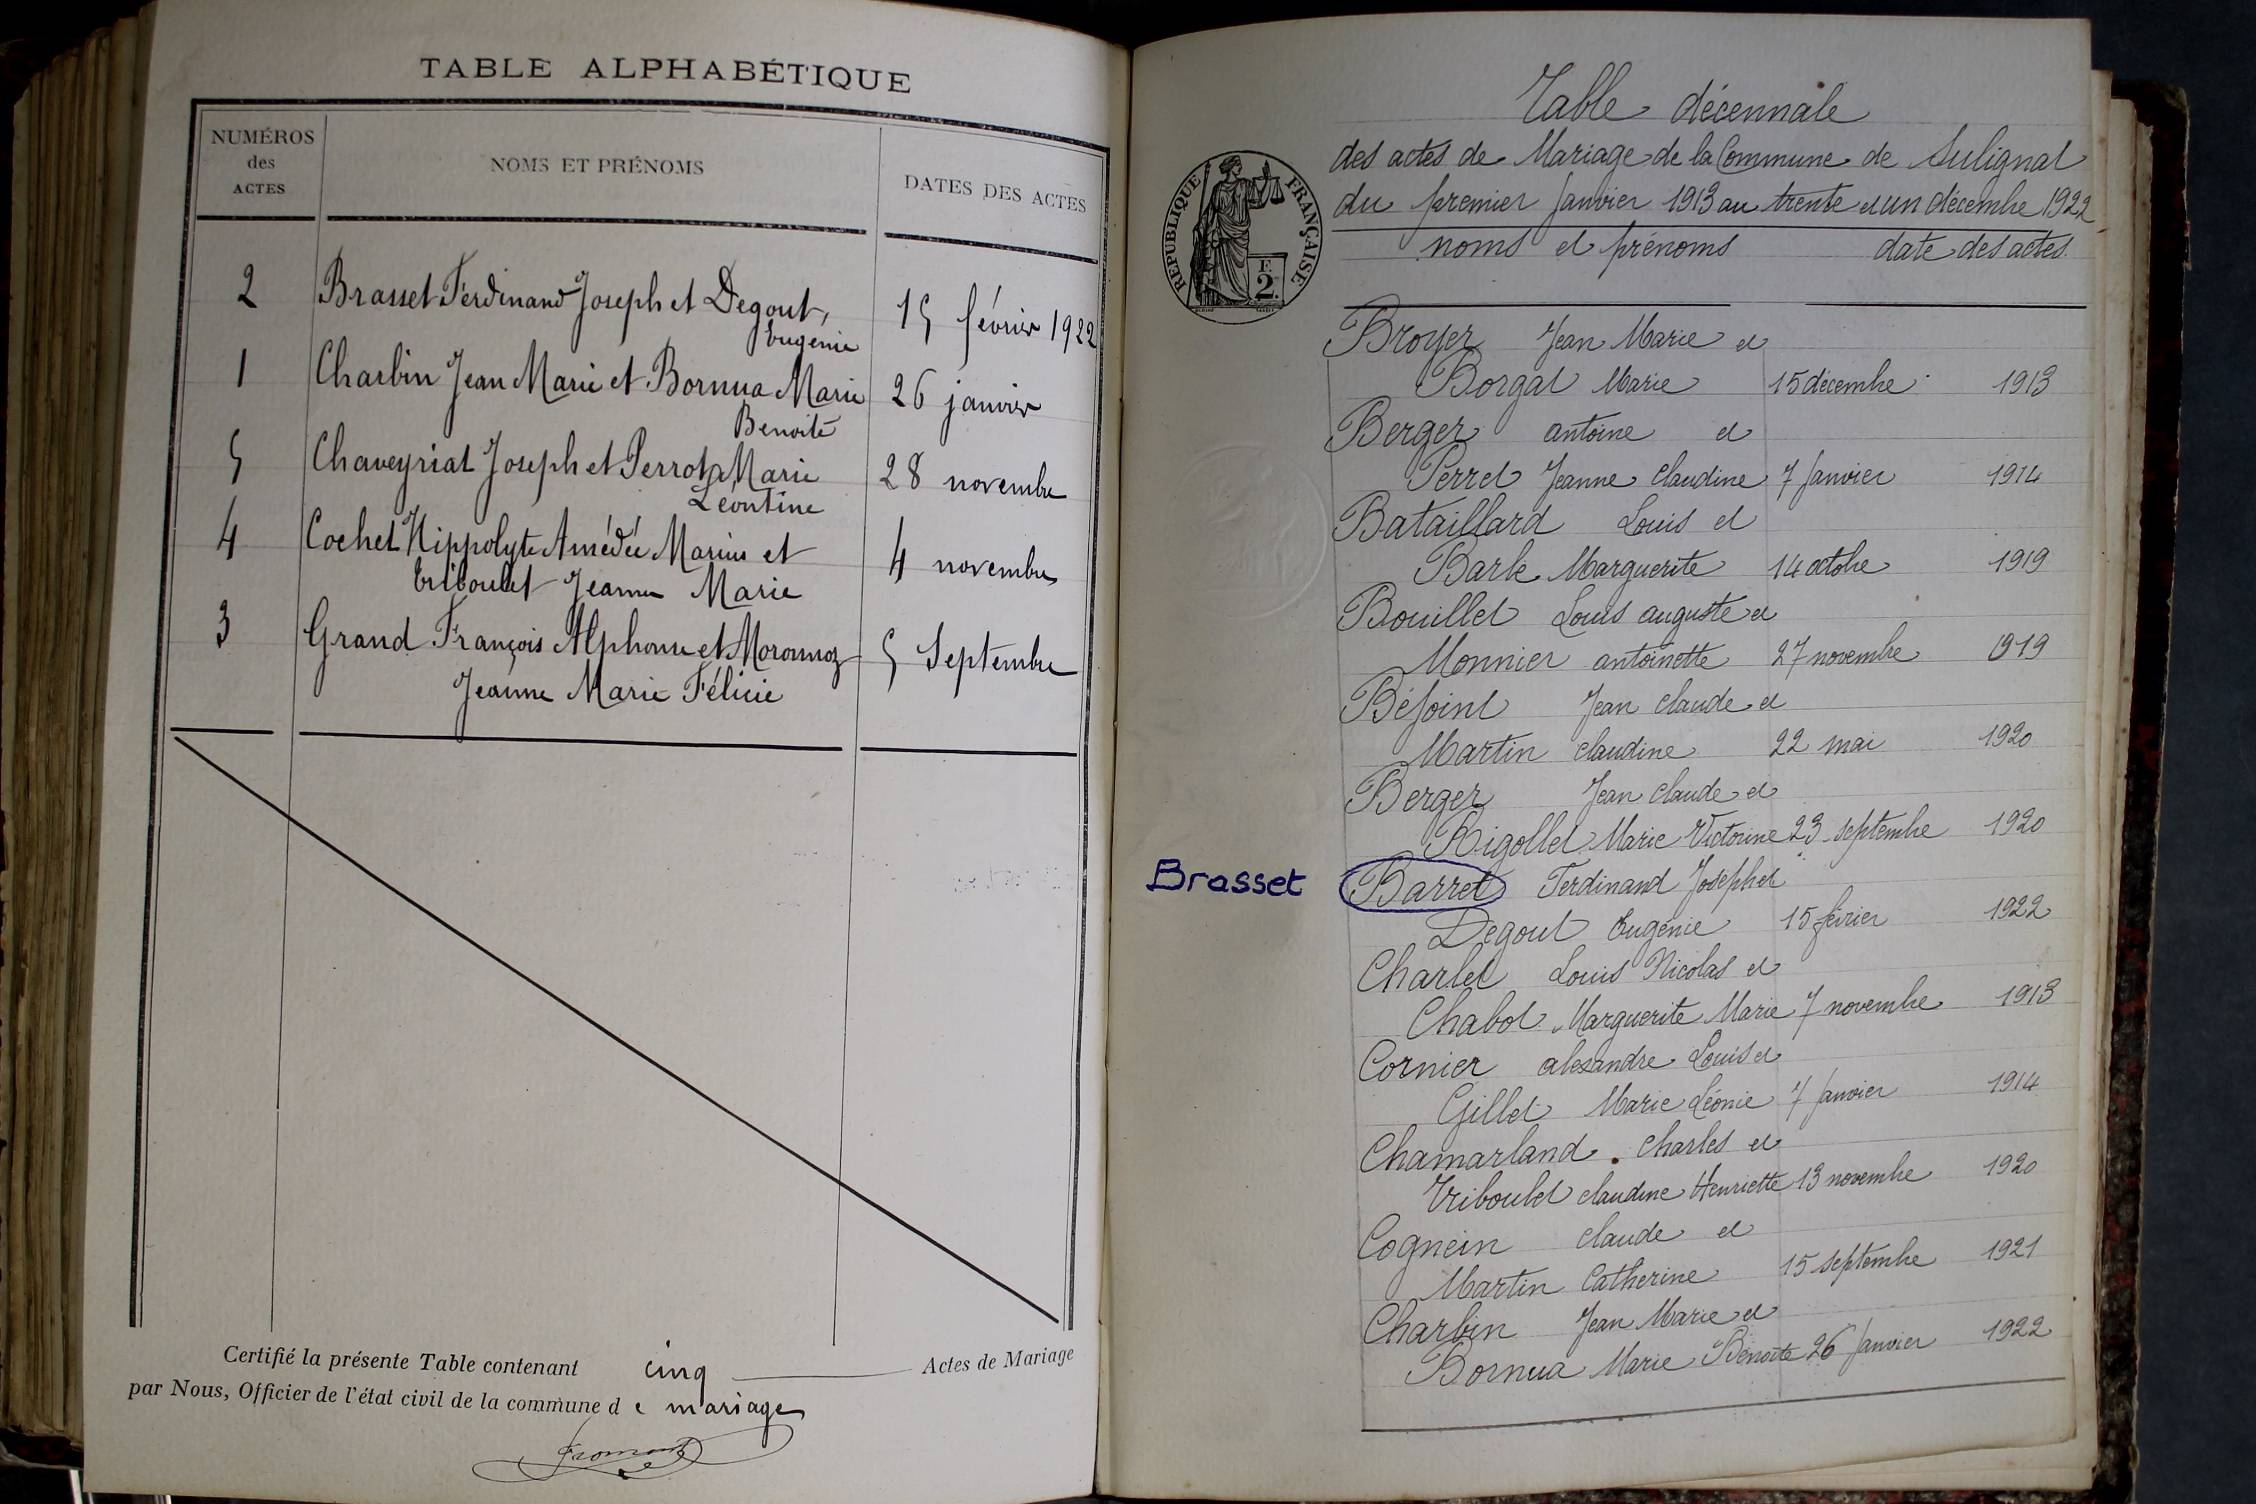 TABLE ALPHABÉTIQUE
NUMÉROS
des
ACTES
NOMS ET PRÉNOMS
DATES DES ACTES
2 Brasset Ferdinand Joseph et Degout, 15 février 1922
Eugénie
1 Charbin Jean Marie et Bornua Marie 26 janvier
Benoite
5 Chaveyriat Joseph et Perrot Marie 28 novembre
Léontine
4 Cochet Hippolyte Amédée Marius et 4 novembre
Triboulet Jeanne Marie
3 Grand François Alphonse et Moronnoz 5 Septembre
Jeanne Marie Félicie
Certifié la présente Table contenant cinq Actes de Mariage
par Nous, Officier de l'état civil de la commune d e mariage
Table décennale
des actes de Mariage de la Commune de Sulignat
du premier Janvier 1913 au trente et un décembre 1922
RÉPUBLIQUE FRANÇAISE
F.
2.
noms et prénoms date des actes
Broyer Jean Marie et
Borgat Marie 15 décembre 1913
Berger antoine et
Perret Jeanne Claudine 7 Janvier 1914
Bataillard Louis et
Barle Marguerite 14 octobre 1919
Bouillet Louis auguste et
Monnier antoinette 27 novembre 1919
Béjoint Jean Claude et
Martin Claudine 22 mai 1920
Berger Jean Claude et
Rigollet Marie Victorine 23 septembre 1920
Brasset Barret Ferdinand Joseph et
Degout Eugénie 15 février 1922
Charlet Louis Nicolas et
Chabot Marguerite Marie 7 novembre 1913
Cornier alexandre Louis et
Gillet Marie Léonie 7 Janvier 1914
Chamarland Charles et
Triboulet Claudine Henriette 13 novembre 1920
Cognein Claude et
Martin Catherine 15 septembre 1921
Charbin Jean Marie et
Bornua Marie Benoite 26 Janvier 1922